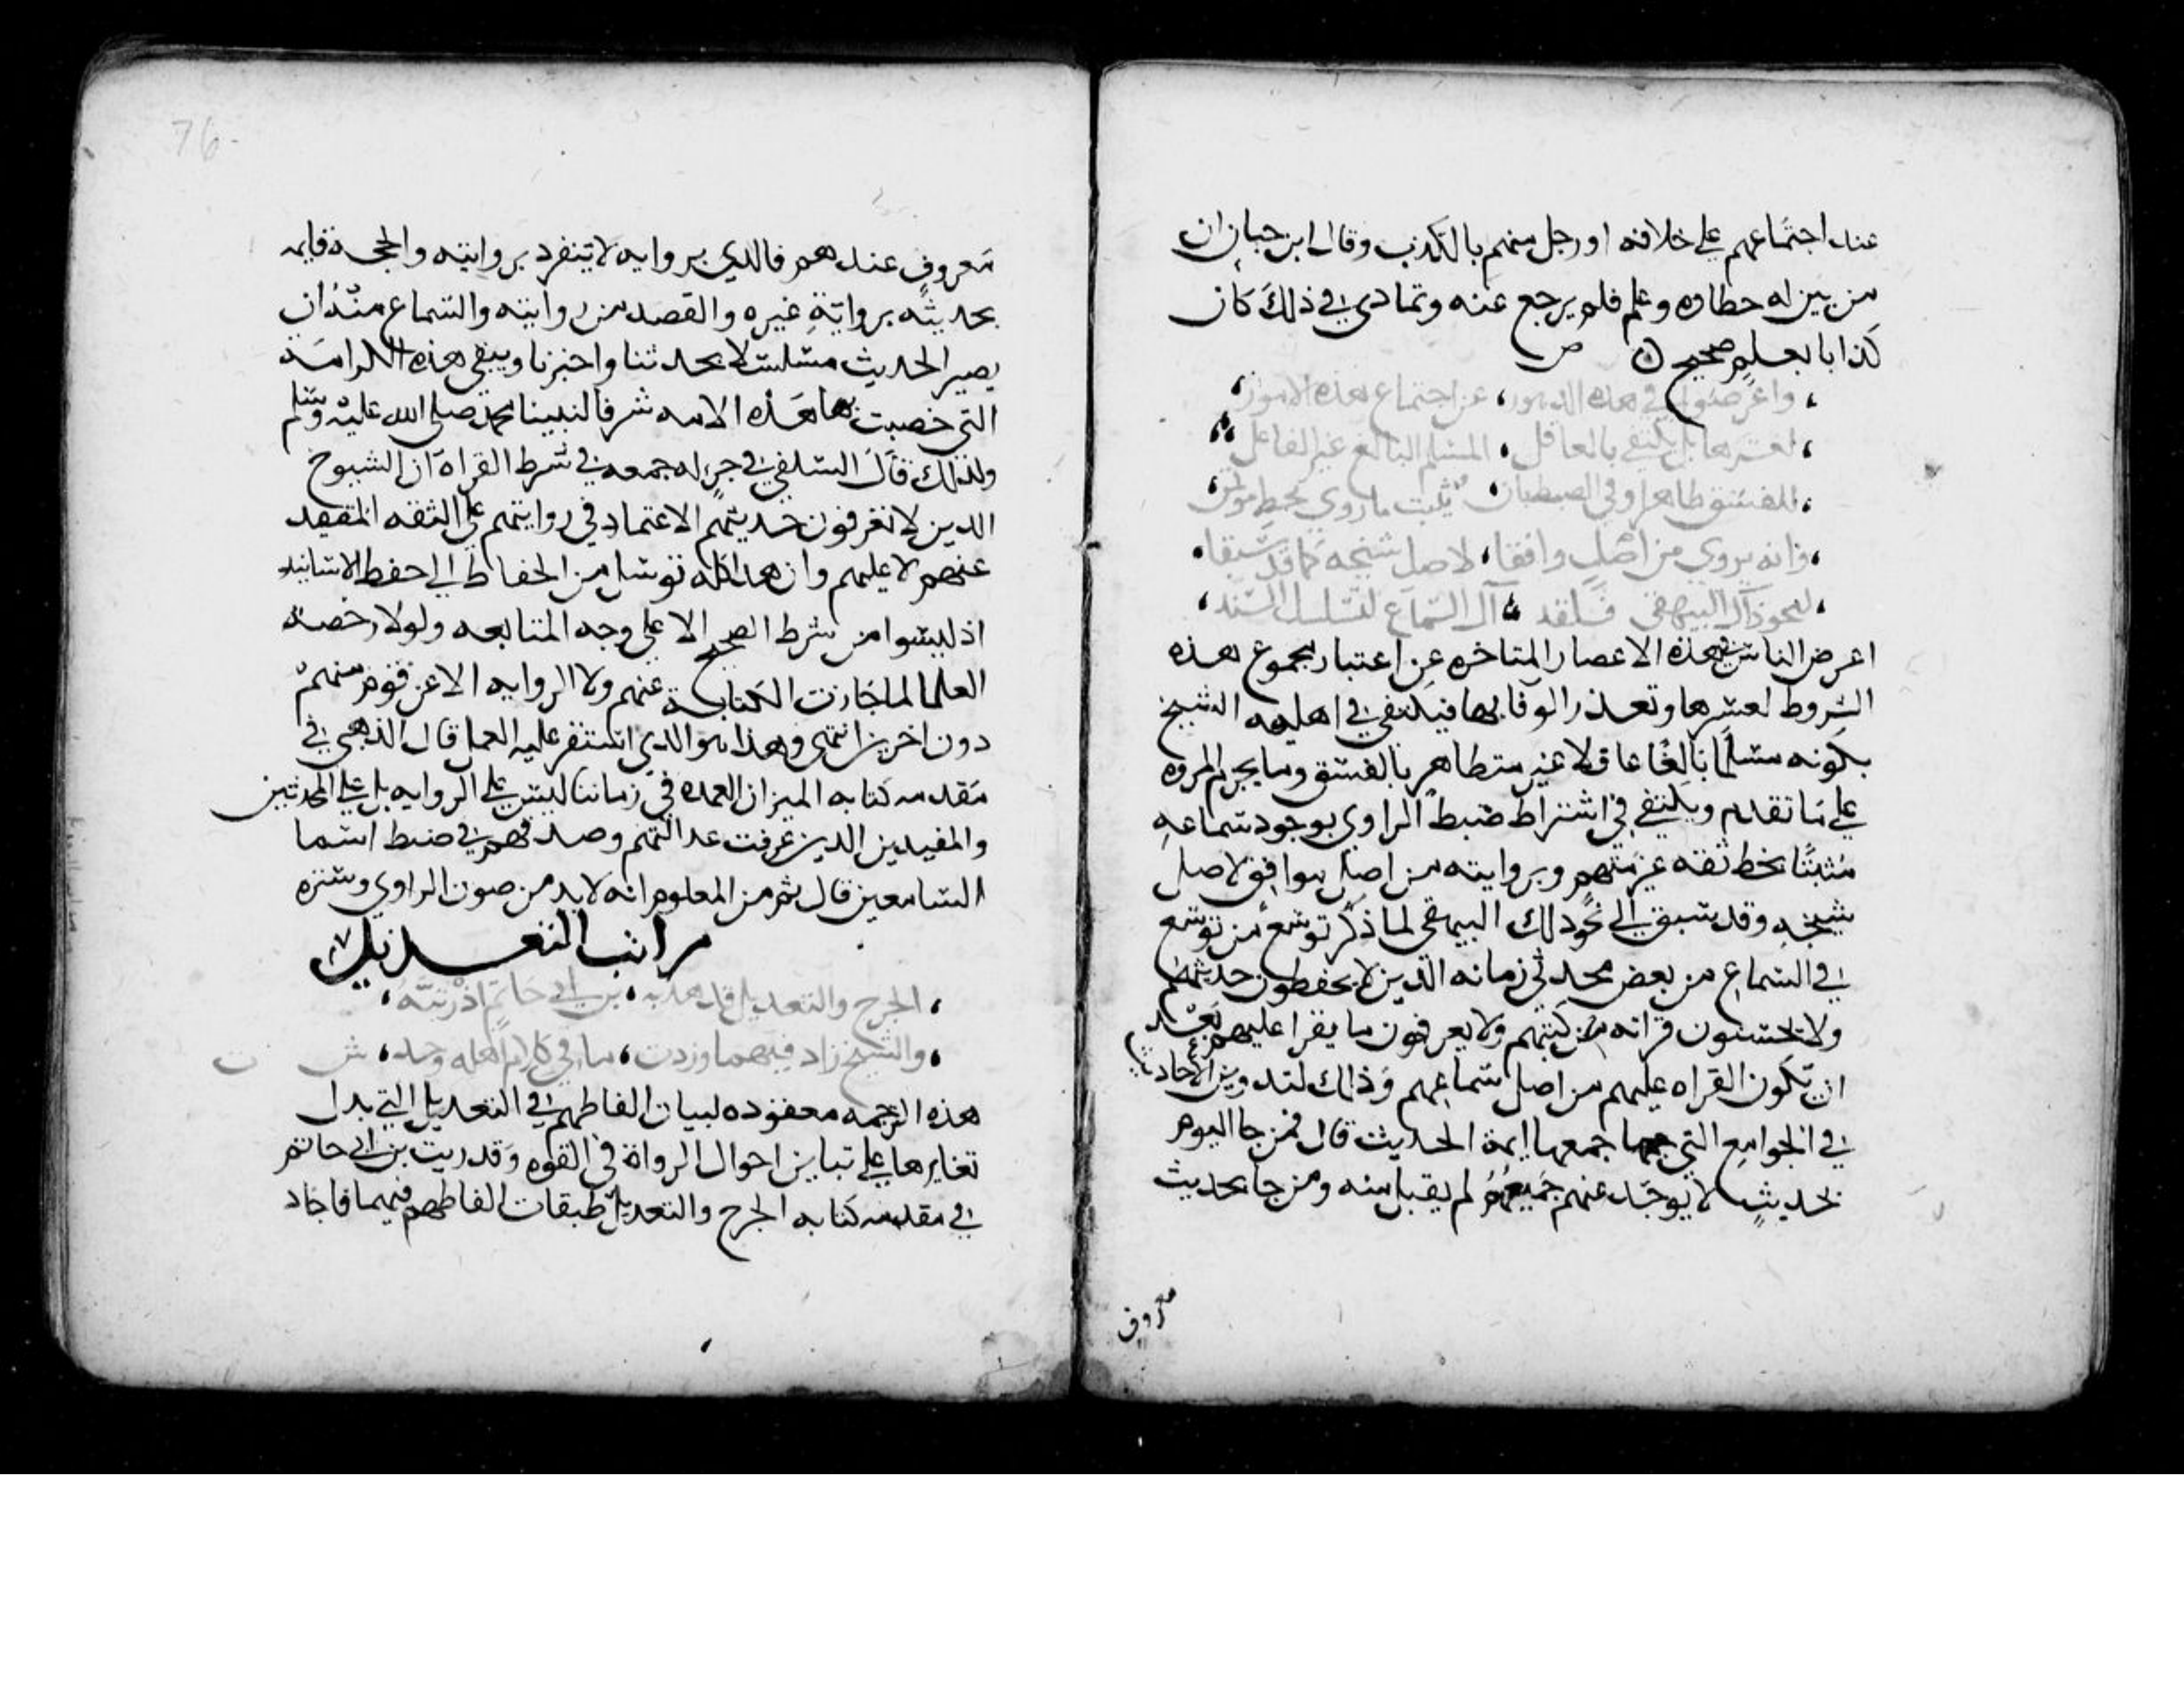 عند اجتماعهم على خلافه او رجل يتهم بالكذب وقال ابن حبان ان
من بين له خطاوه وعلم فلم يرجع عنه وتمادى في ذلك كان
كذابا بعلم صحيح ن ص
واعرضوا في هذه الدهور، عن اجتماع هذه الامور،
لعسرها بل يكتفى بالعاقل، المسلم البالغ غير الفاعل
للفسق ظاهرا وفي الضبط بان، يثبت ما روى بخط موتمن،
وانه يروي من اصل وافقا، لاصل شيخه كما قد سبقا،
لنحو ذاك البيهقي فلقد، آل السماع لتسلسل السند،
اعرض الناس في هذه الاعصار المتاخره عن اعتبار مجموع هذه
الشروط لعسرها وتعذر الوفا بها فيكتفى في اهلية الشيخ
بكونه مسلما بالغا عاقلا غير متظاهر بالفسق وما يخرم المروه
على ما تقدم ويكتفى في اشتراط ضبط الراوي بوجود سماعه
مثبتا بخط ثقه غير متهم وبروايته من اصل موافق لاصل
شيخه وقد سبق الى نحو ذلك البيهقي لما ذكر توسع من توسع
في السماع من بعض محدثي زمانه الذين لا يحفظون حديثهم
ولا يحسنون قراته من كتبهم ولا يعرفون ما يقرا عليهم بعد
ان تكون القراه عليهم من اصل سماعهم وذلك لتدوين الاحاديث
في الجوامع التي جمعها ايمة الحديث قال فمن جا اليوم
بحديث لا يوجد عند جميعهم لم يقبل منه ومن جا بحديث
معروف
76
معروف عندهم فالذي يرويه لا يتفرد بروايته والحجة قايمه
بحديثه برواية غيره والقصد من روايته والسماع منه ان
يصير الحديث مسلسلا بحدثنا واخبرنا ويبقى هذه الكرامة
التي خصت بها هذه الامه شرفا لنبينا محمد صلى الله عليه وسلم
ولذلك قال السلفي في جزء له جمعه في شرط القراة ان الشيوخ
الذين لا يعرفون حديثهم الاعتماد في روايتهم على الثقه المقيد
عنهم لا عليهم وان هذا كله توسل من الحفاظ الى حفظ الاسانيد
اذ ليسوا من شرط الصحيح الا على وجه المتابعه ولولا رخصة
العلما لما جازت الكتابة عنهم ولا الروايه الا عن قوم منهم
دون اخرين انتهى وهذا هو الذي استقر عليه العمل قال الذهبي في
مقدمه كتابه الميزان العمده في زماننا ليس على الروايه بل على المحدثين
والمفيدين الذين عرفت عدالتهم وصدقهم في ضبط اسما
السامعين قال ثم من المعلوم انه لا بد من صون الراوي وستره
مراتب التعديل
، الجرح والتعديل قد هذبه، بن ابي حاتم اذ رتبه،
، والشيخ زاد فيهما وزدت، ما في كلام اهله وجدت، ش
هذه الترجمه معقوده لبيان الفاظهم في التعديل التي يدل
تغايرها على تباين احوال الرواة في القوه وقد رتب بن ابي حاتم
في مقدمه كتابه الجرح والتعديل طبقات الفاظهم فيهما فاجاد